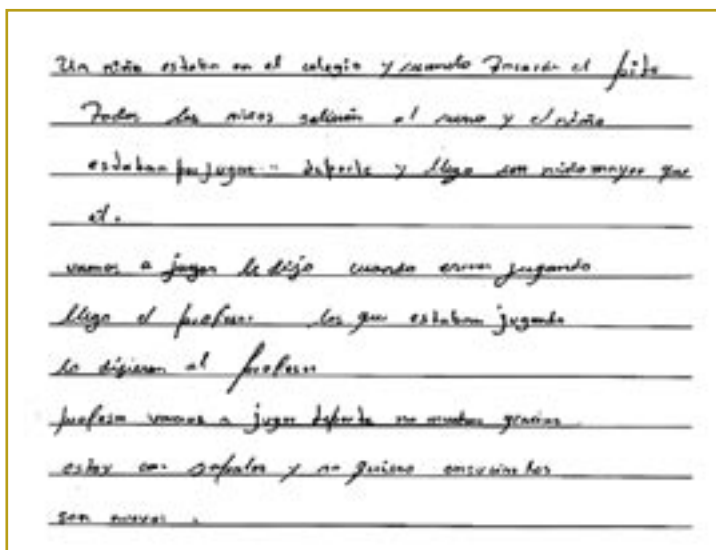 Un niño estaba en el colegio y cuando tocarón el pito
Todos los niños salierón al recreo y el niño
estaban por jugar deporte y llego un niño mayor que
el.
vamos a jugar le dijo cuando jugando
llego el profesor los que estaban jugando
le digieron al profesor
profesor vamos a jugar deporte no muchas gracias
estoy con sapatos y no quiero ensusiarlos
son nuevos.